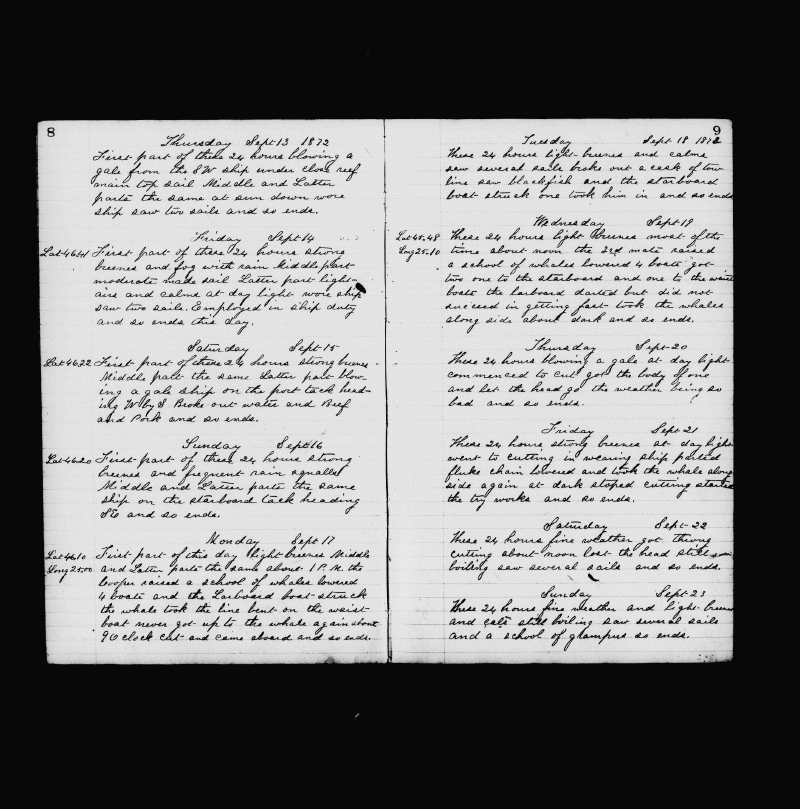 8
Thursday Sept 13 1872
First part of these 24 hours blowing a
gale from the SW ship under close reef
main top sail Middle and Latter
parts the same at sun down wore
ship saw two sails and so ends.
Friday Sept 14
Lat 46.41 First part of these 24 hours strong
breezes and fog with rain Middle part
moderate made sail Latter part light
airs and calms at day light wore ship
saw two sails. Employed in ship duty
and so ends this Day.
Saturday Sept 15
Lat 46.22 First part of these 24 hours strong breezes
Middle part the same Latter part blow-
ing a gale ship on the port tack head-
ing W by S Broke out water and Beef
and Pork and so ends.
Sunday Sept 16
Lat 46.20 First part of these 24 hours strong
breezes and frequent rain squalls
Middle and Latter parts the same
ship on the starboard tack heading
and so ends.
Monday Sept 17
Lat 46.10 First part of this day light breeze Middle
Long 25.00. and Latter parts the same about 1 P.M. the
Cooper raised a school of whales lowered
4 boats and the Larboard boat struck
the whale took the line bent on the waist
boat never got up to the whale again about
9 O clock cut and came aboard and so ends.
9
Tuesday Sept 18 1872
These 24 hours light breezes and calms
saw several sails broke out a cask of tow
line saw blackfish and the starboard
boat struck one took him in and so ends
Wednesday Sept 19
Lat 45.48 These 24 hours light breezes most of the
Lng 25.10 time about noon the 3rd mate raised
a school of whales lowered 4 boats got
two one to the starboard and one to the waist
boats the larboard darted but did not
succeed in getting fast took the whales
along side about dark and so ends.
Thursday Sept 20
These 24 hours blowing a gale at day light
commenced to cut got the body of one
and let the head go the weather being so
bad and so ends.
Friday Sept 21
These 24 hours strong breezes at day light
went to cutting in wearing ship parted
fluke chain lowered and took the whale along
side again at dark stoped cutting started
the try works and so ends.
Saturday Sept 22
These 24 hours fine weather got throug
cutting about noon lost the head still
boiling saw several sails and so ends.
Sunday Sept 23
These 24 hours fine weather and light breezes
and still boiling saw several sails
and a school of grampus so ends.